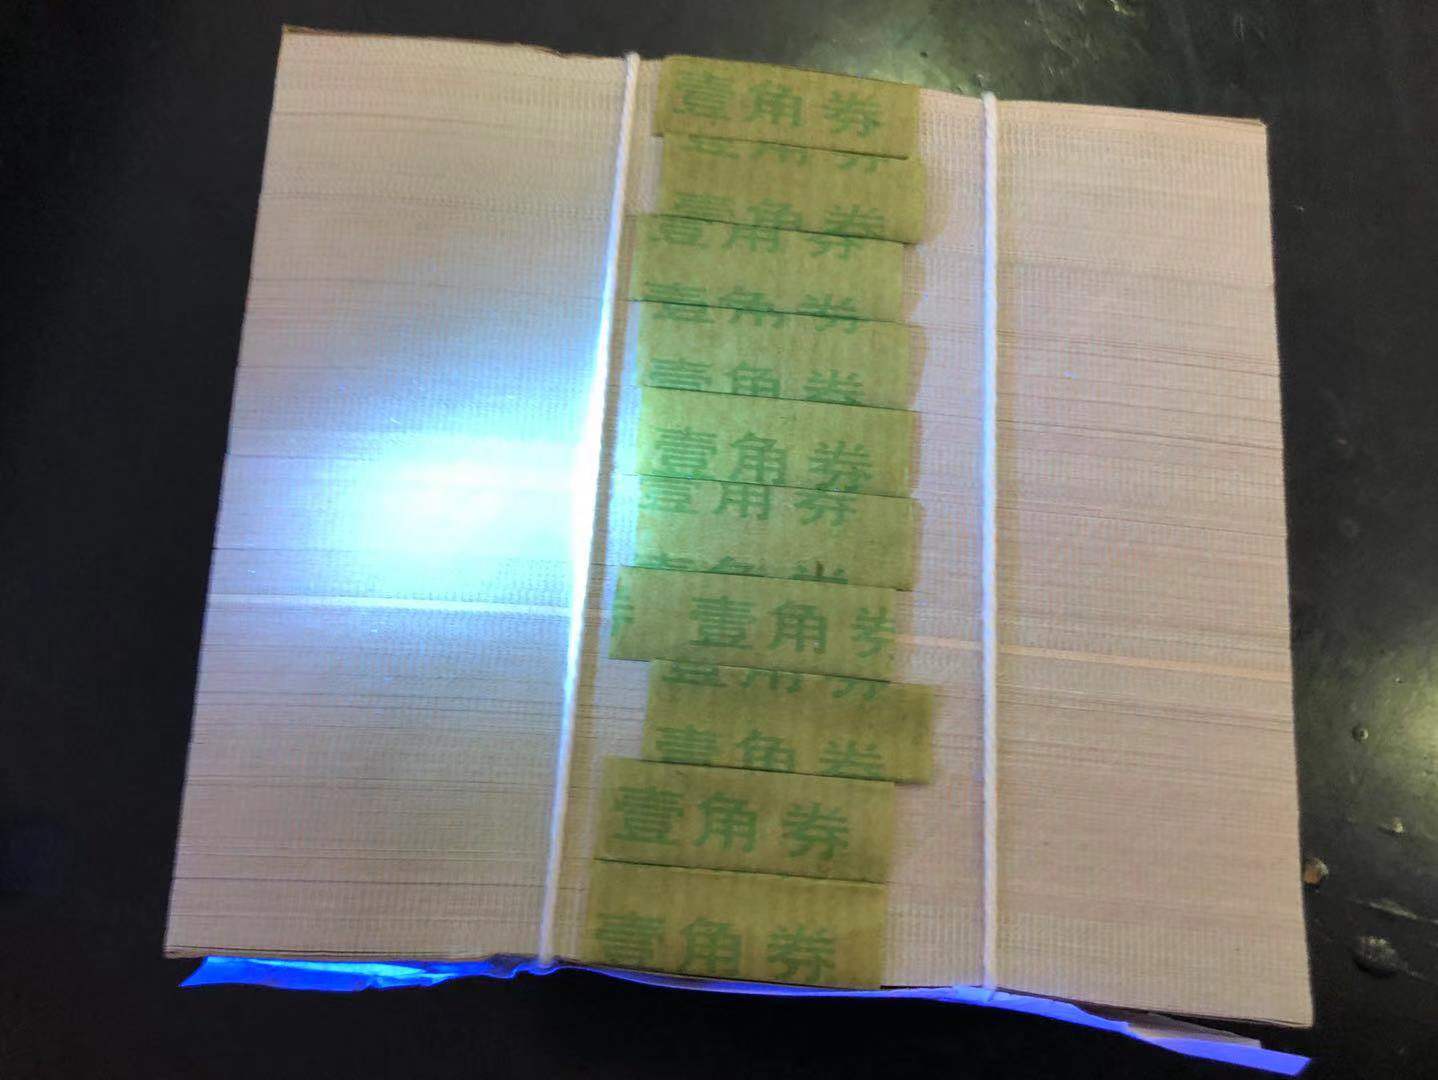 壹角券
壹角券
壹角券
壹角券
壹角券
壹角券
壹角券
壹角券
壹角券
壹角券
壹角券
壹角券